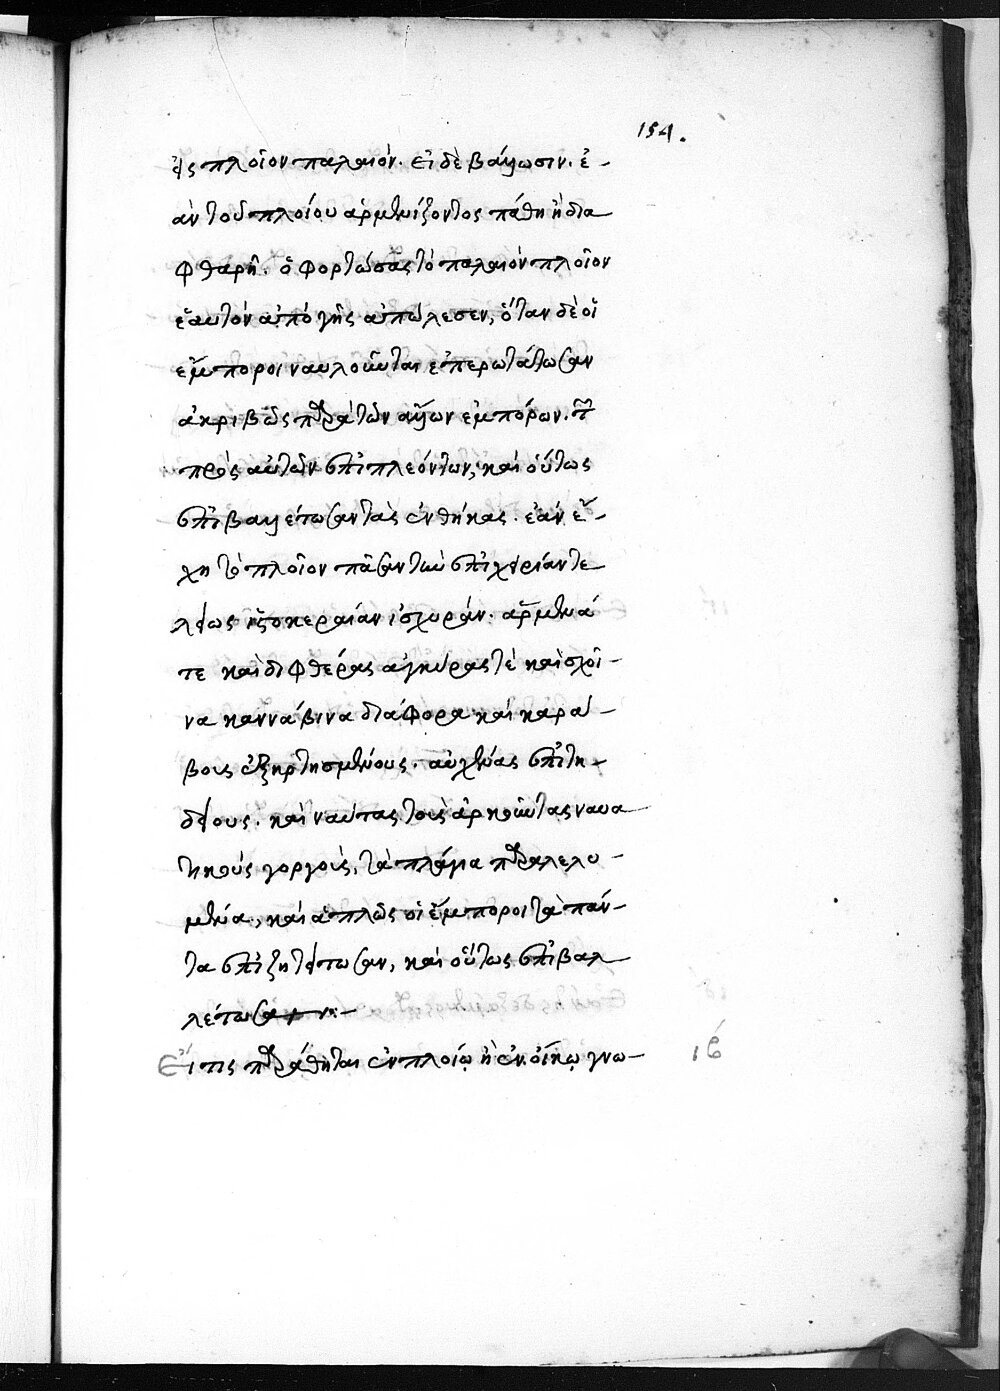 154.
εἰς πλοῖον παλαιόν. εἰ δὲ βάλωσιν. ἐ-
ὰν τοῦ πλοίου ἀρμενίζοντος πάθη ἢ δια
φθαρῆ. ὁ φορτώσας τὸ παλαιὸν πλοῖον
ἑαυτὸν ἀπὸ γῆς ἀπώλεσεν, ὅταν δὲ οἱ
ἔμποροι ναυλοῦνται ἐπερωτάτωσαν
ἀκριβῶς παρὰ τῶν ἄλλων ἐμπόρων. τῶν
πρὸς αὐτῶν ἐπιπλεόντων, καὶ οὕτως
ἐπιβαλλέτωσαν τὰς ἐνθήκας. ἐὰν ἔ-
χη τὸ πλοῖον πᾶσαν τὴν ἐπιχειρίαν τε
λείως ἱστοκεραίαν ἰσχυράν. ἄρμενά
τε καὶ διφθέρας ἀγκύρας τὲ καὶ σχοῖ-
να καννάβινα διάφορα καὶ καρά-
βους ἐξηρτησμένους. αὐχένας ἐπιτη-
δείους. καὶ ναύτας τοὺς ἀρκοῦντας ναυα
τικοὺς γοργοὺς, τὰ πλάγια παραλελυ-
μένα, καὶ ἁπλῶς οἱ ἔμποροι τὰ πάν-
τα ἐπιζητείτωσαν, καὶ οὕτως ἐπιβαλ
λέτωσαν:-
Εἴ τις παράθηται ἐν πλοίῳ ἢ ἐν οἴκῳ γνω- ιβ